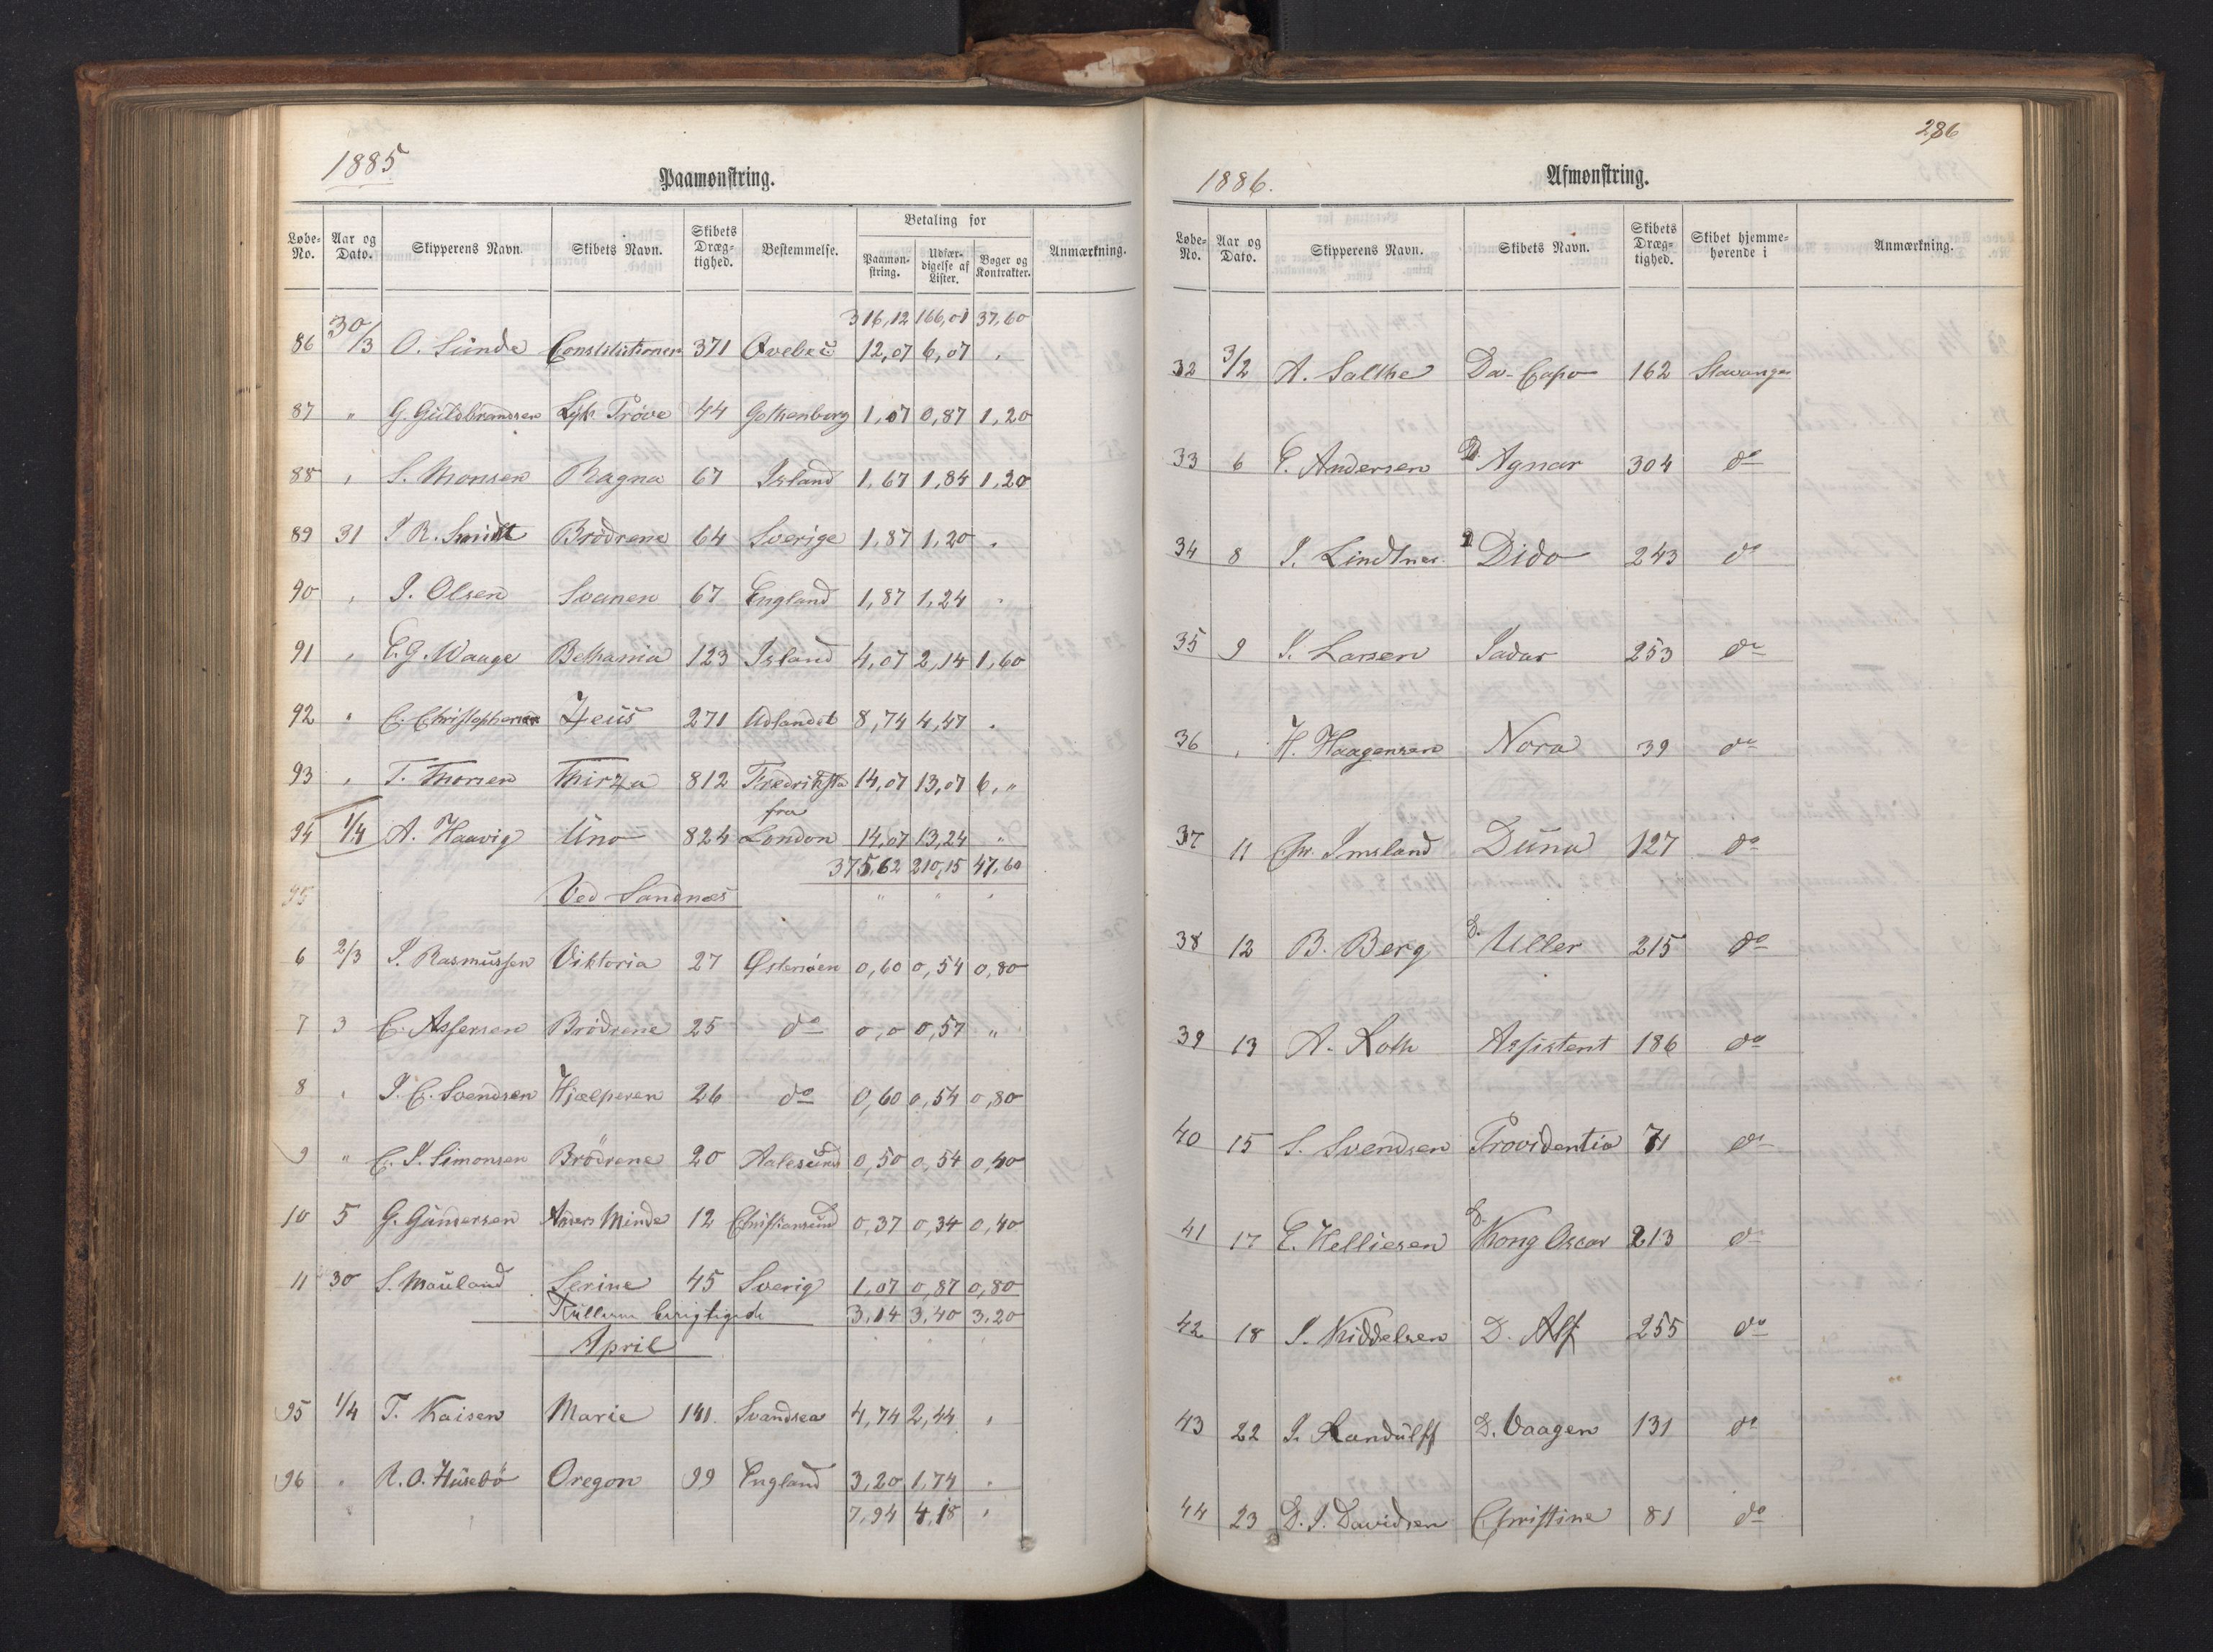 1885
Paamønstring.
Løbe-No. Aar og Dato. Skipperens Navn. Skibets Navn. Skibets Dræg-tighed. Bestemmelse. Betaling for Paamøn-string. Udfær-digelse af Lister. Bøger og Kontrakter. Anmærkning.
316,12 166,01 37,60
86 30/3 O. Sünde 371 12,07 6,07 "
87 " G. Güldbrandsen Lyk. Prøve 44 Gothenborg 1,07 0,87 1,20
88 " S. Monsen Ragna 67 Island 1,67 1,84 1,20
89 31 I R. Smidt Brödrene 64 Sverige 1,87 1,20 "
90 " I. Olsen Svanen 67 England 1,87 1,24 "
91 " E. G. Waage Bethania 123 Island 4,07 2,14 1,60
92 " C. Christophersen Zeüs 271 Udlandet 8,74 4,47 "
93 " T. Thorsen Thirza 812 Fredriksta 14,07 13,07 6, "
94 1/4 A. Haavig Üno 824 fra London 14,07 13,24 "
375,62 210,15 47,60
95 Ved Sandnæs " " "
6 2/3 I. Rasmüssen Viktoria 27 Østersöen 0,60 0,54 0,80
7 3 C. Assersen Brödrene 25 do 0,0 0,57 "
8 " I. C. Svendsen Hjælperen 26 do 0,60 0,54 0,80
9 " C. I. Simonsen Brödrene 20 Aalesünd 0,50 0,54 0,40
10 5 G. Gündersen Anders Minde 12 Christiansünd 0,37 0,34 0,40
11 30 S. Maüland Serine 45 Sverig 1,07 0,87 0,80
3,14 3,40 3,20
April
95 1/4 T. Kaisen Marie 141. Svandsea 4,74 2,44 "
96 " R. O. Hüsebö Oregon 99 England 3,20 1,74 "
7,94 4,18 "
286
1886.
Afmønstring.
Løbe-No. Aar og Dato. Skipperens Navn. Skibets Navn. Skibets Dræg-tighed. Skibet hjemme-hørende i Anmærkning.
32 3/2 A. Salthe Da-Capo 162 Stavanger
33 6 E. Andersen D. Agnar 304 do
34 8 I. Lindtner D Dido 243 do
35 9 I. Larsen Sadar 253 do
36 " H. Haagensen Nora 39 do
37 11 Chr. Imsland Düna 127 do
38 12 B. Berg D. Uller 215 do
39 13 A. Roth Assistent 186 do
40 15 S. Svendsen Providentia 71 do
41 17 E. Helliesen D. Kong Oscar 213 do
42 18 I. Middelsen D. Alf 255 do
43 22 I. Randülff D. Vaagen 131 do
44 23 D. I. Davidsen Christine 81 do